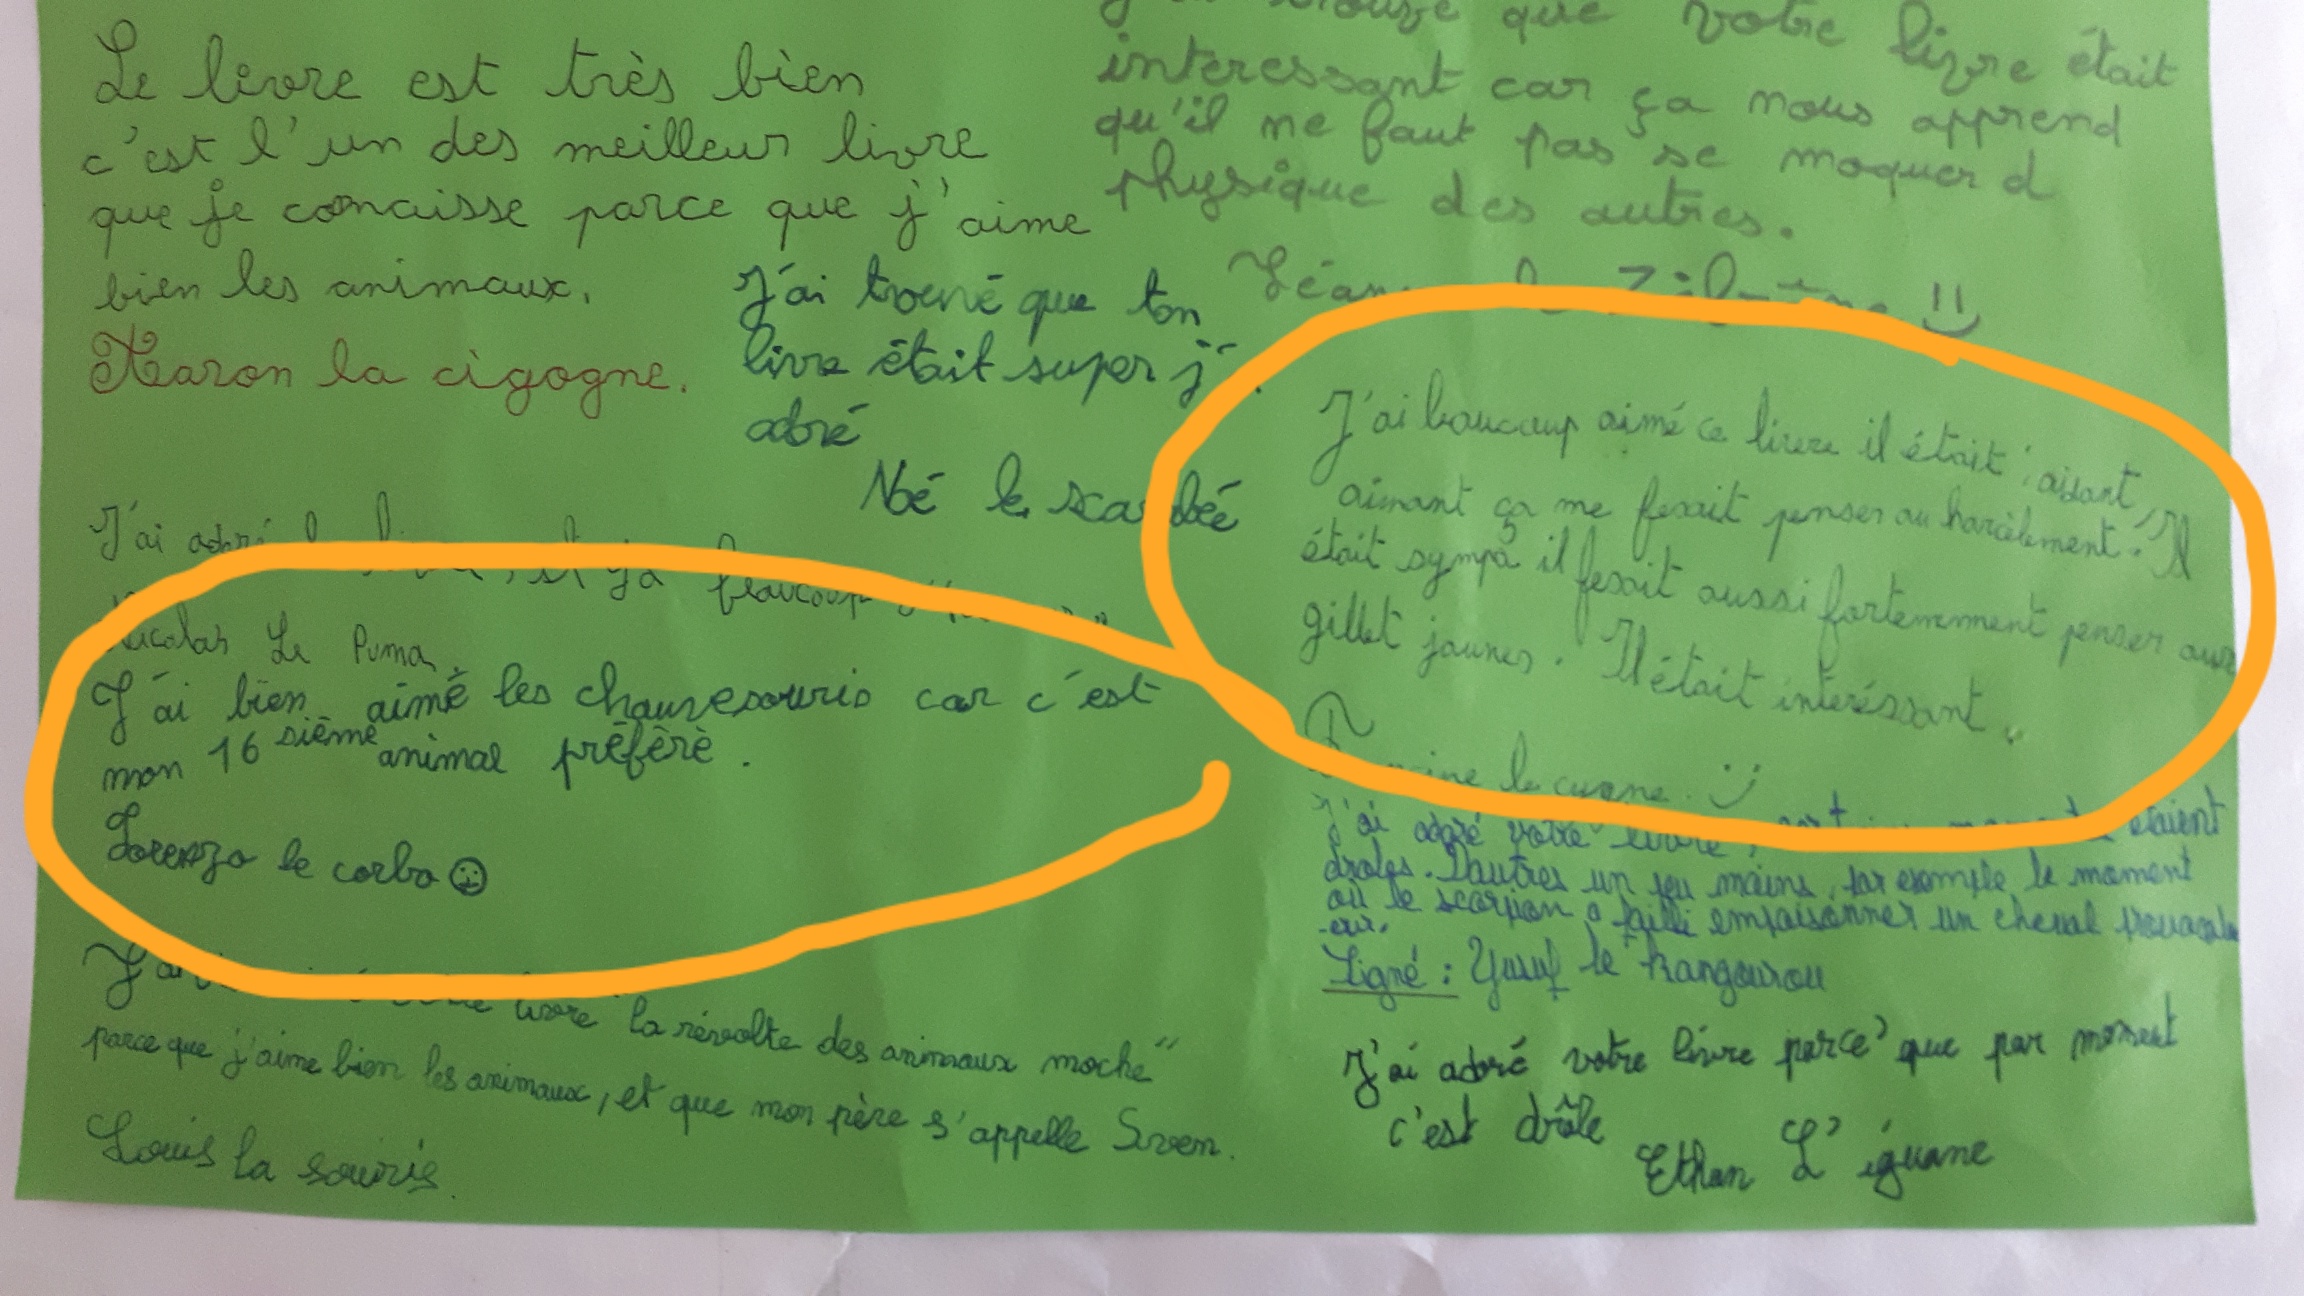 Le livre est très bien
c'est l'un des meilleur livre
que je conaisse parce que j'aime
bien les animaux.
Naron la cigogne.
que votre livre était
interessant car ça nous apprend
qu'il ne faut pas se moquer d
physique des autres.
J'ai trouvé que ton
livre était super j'
adoré
Noé le
J'ai adoré
beaucoup
Nicolas Le Puma
J'ai bien aimé les chauvesouris car c'est
mon 16 sième animal préfèrè.
Lorenzo le corbo
livre "la révolte des animaux moche"
parce que j'aime bien les animaux, et que mon père s'appelle Sven.
Louis la souris.
J'ai baucaup aimé ce livre il était
aimant ça me fesait penser au harcèlement. Il
était sympa il fesait aussi fortemment penser aux
gillet jaunes. Il était interéssant.
le
J'ai adoré votre livre, étaient
droles. D'autres un peu moins, par exemple le moment
où le scorpion a failli empoisonner un cheval
Signé : Yusuf le kangourou
J'ai adoré votre livre parce que par moment
c'est drôle
Ethan L'iguane